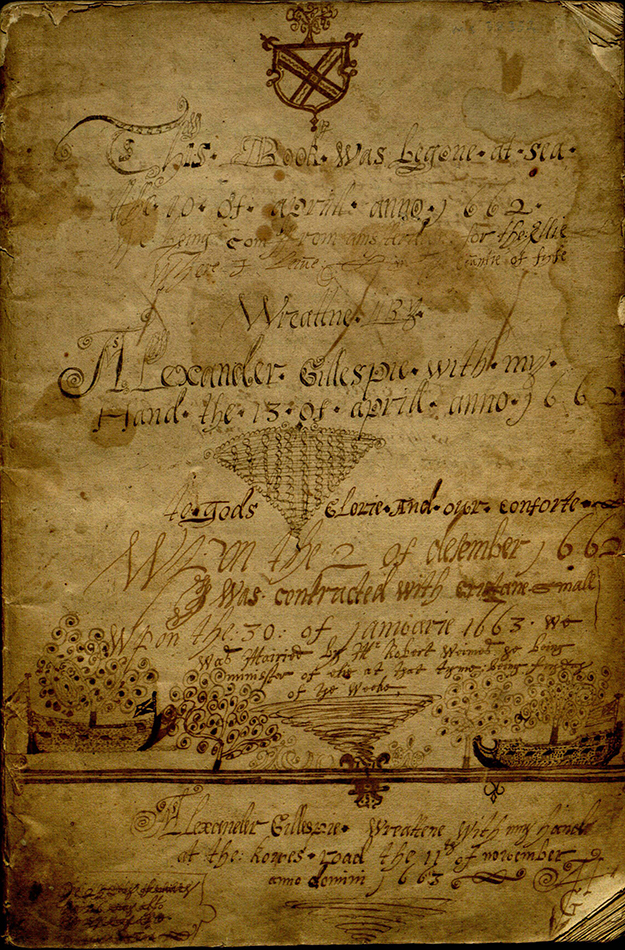 This Book was begone at sea
the 10 of aprill anno 1662
we being com from amsterdam for the Ellie
where I in the countie of fife
Wreattne By
ALexander Gillespie with my
Hand the 13 of aprill anno 1662
to gods Glorie and our conforte
Wpon the 2 of desember 1662
I was contracted with cristane small
Wpon the 30 of januarie 1663 we
was Mairied by Mr Robert Weimes he being
minister of elie at that tyme being fryday
of the weeke
ALexander Gillespie Wreattene With my hand
at the Kowes road the 11th of november
anno domini 1663
AG